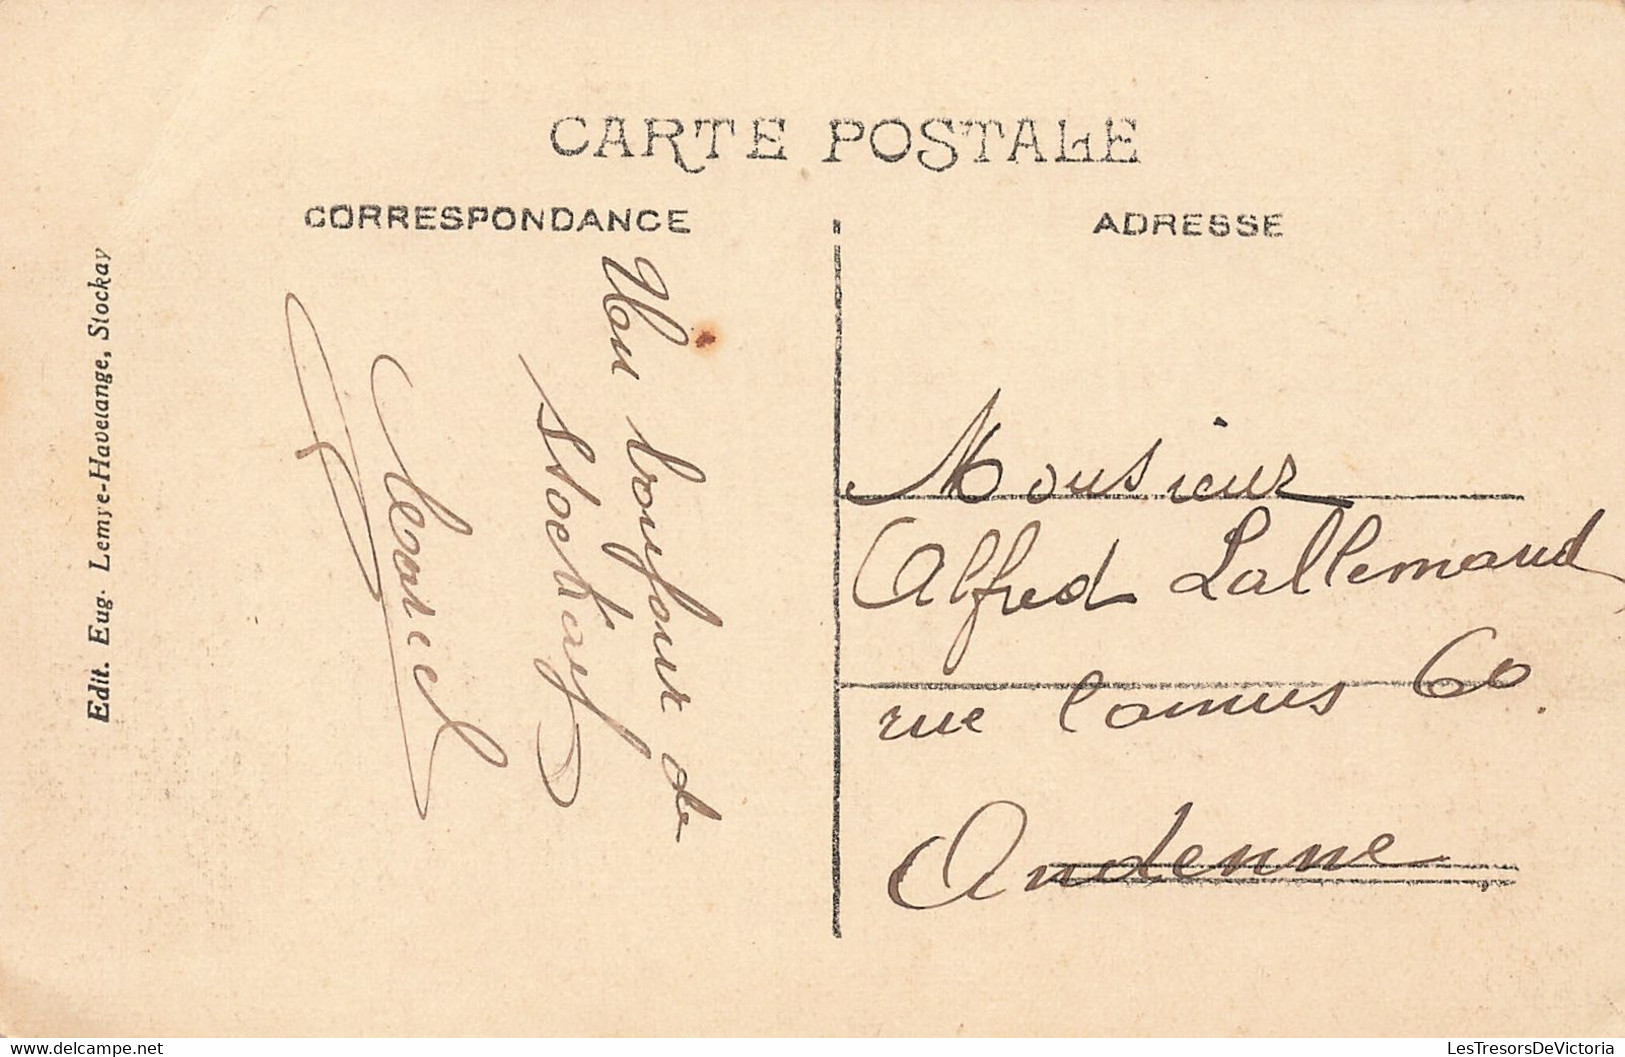 CARTE POSTALE
CORRESPONDANCE
ADRESSE
Edit. Eug. Lemye-Havelange, Stockay
Un bonjour de
Stockay
Monsieur
Alfred Lallemand
rue Camus 60.
Andenne
LesTresorsDeVictoria
delcampe.net